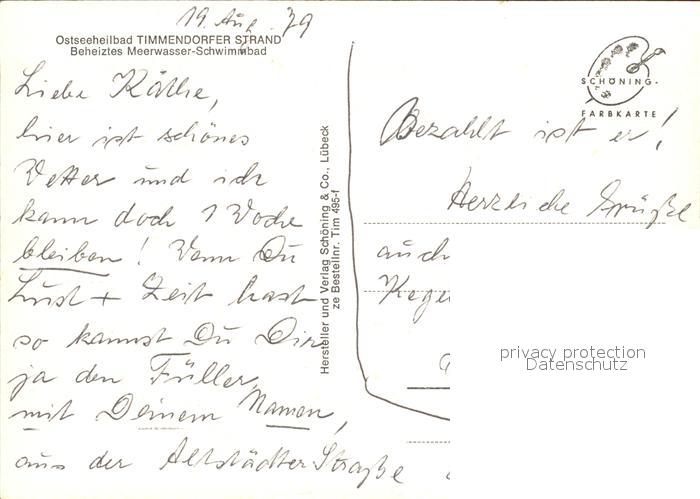 19. Aug. 79
Ostseeheilbad TIMMENDORFER STRAND
Beheiztes Meerwasser-Schwimmbad
Liebe Käthe,
hier ist schönes
Wetter und ich
kann doch 1 Woche
bleiben! Wenn Du
Lust + Zeit hast
so kannst Du Dir
ja den Füller,
mit Deinem Namen,
aus der Altstädter Straße
Hersteller und Verlag Schöning & Co., Lübeck
ze Bestellnr. Tim 495-f
SCHÖNING-
FARBKARTE
Bezahlt ist er!
Herzliche Grüße
auch
privacy protection
Datenschutz